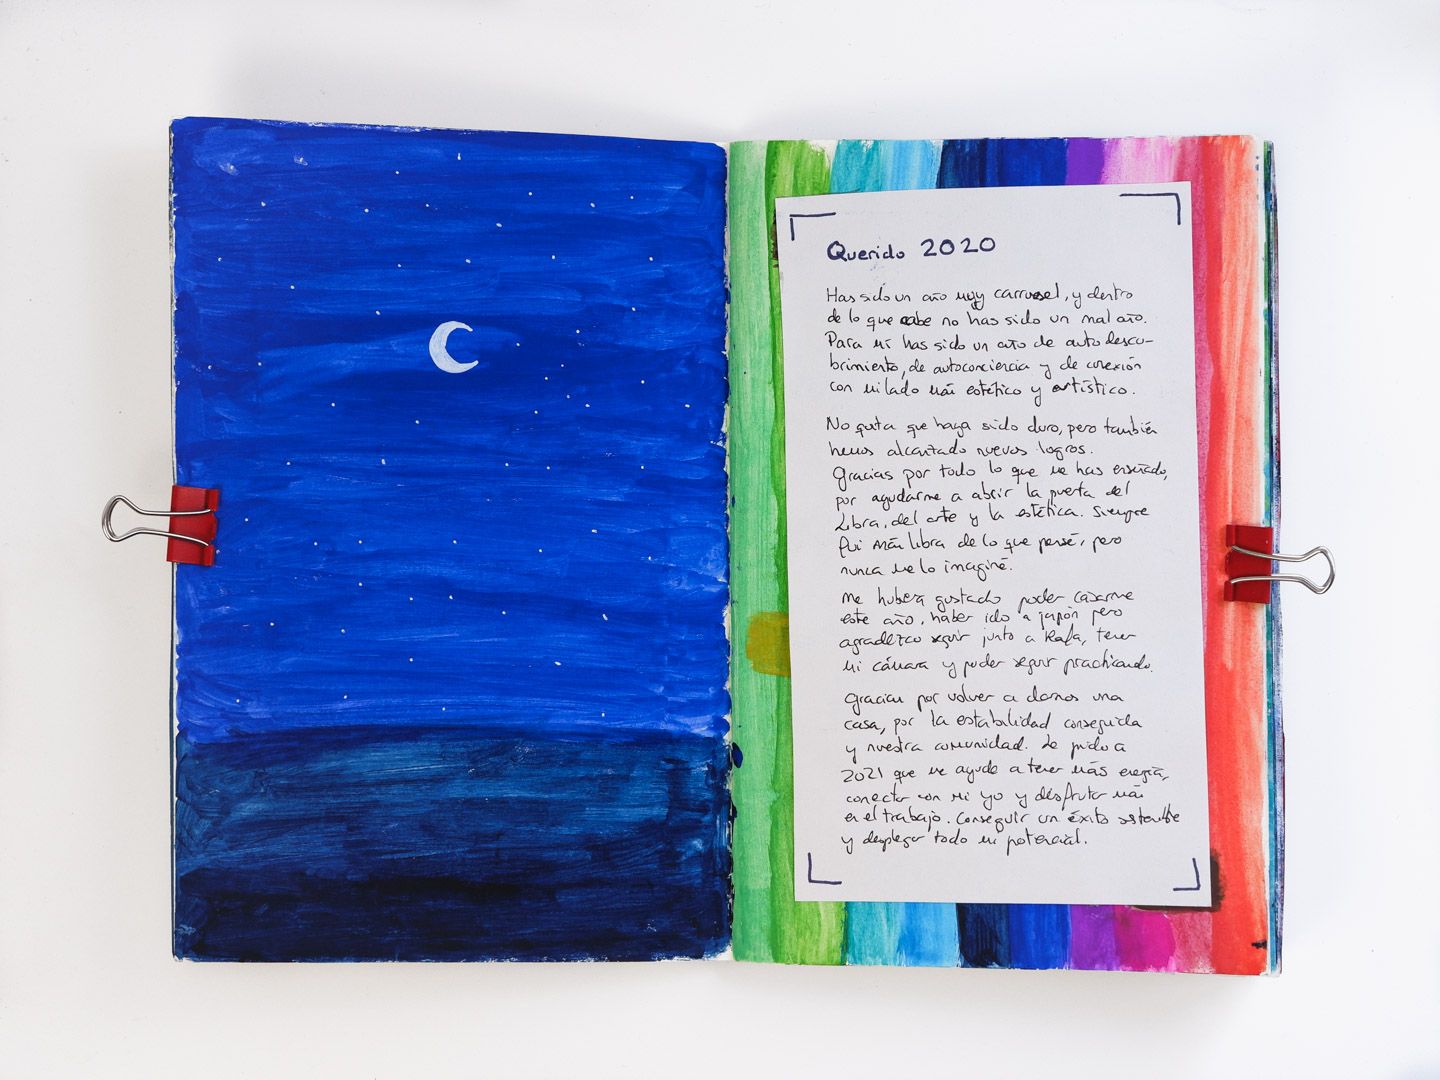 Querido 2020
Has sido un año muy carrusel, y dentro
de lo que cabe no has sido un mal año.
Para mí has sido un año de autodescu-
brimiento, de autoconciencia y de conexión
con mi lado más estético y artístico.
No quita que haya sido duro, pero también
hemos alcanzado nuevos logros.
Gracias por todo lo que me has enseñado,
por ayudarme a abrir la puerta del
Libra, del arte y la estética. Siempre
fui más libra de lo que pensé, pero
nunca me lo imaginé.
Me hubiera gustado poder casarme
este año, haber ido a japón pero
agradezco seguir junto a Rafa, tener
mi cámara y poder seguir practicando.
Gracias por volver a darnos una
casa, por la estabilidad conseguida
y nuestra comunidad. Le pido a
2021 que me ayude a tener más energía,
conectar con mi yo y disfrutar más
en el trabajo. Conseguir un éxito sostenible
y desplegar todo mi potencial.